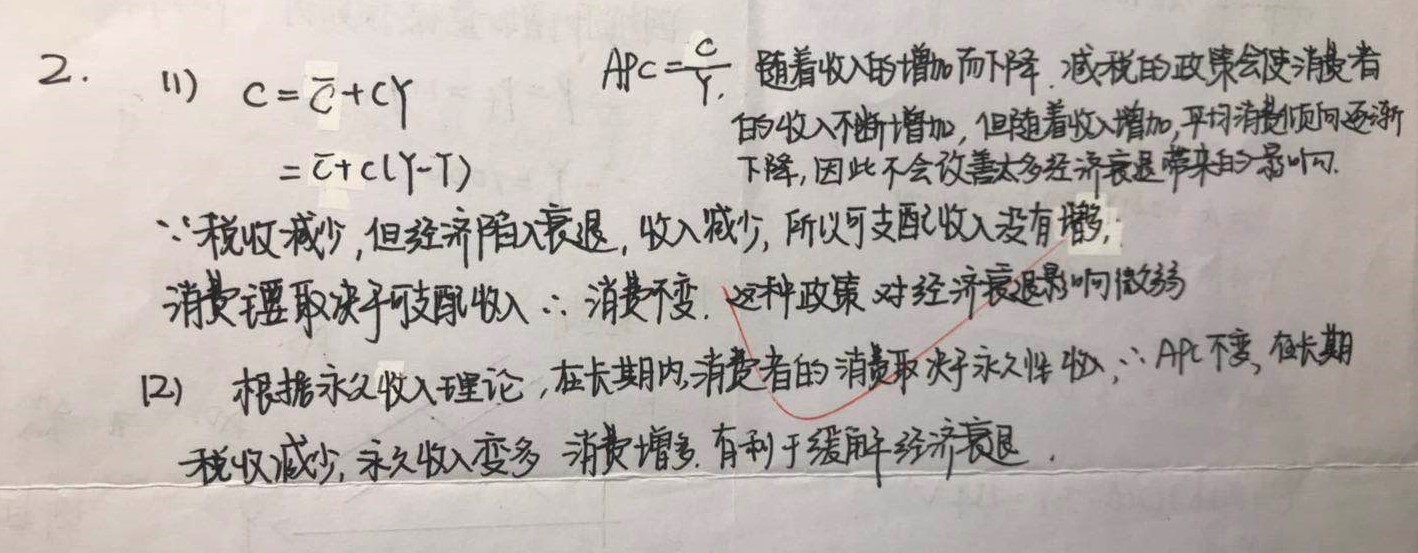 2. (1) C = C̄ + CY
= C̄ + C(Y-T)
APC = C/Y. 随着收入的增加而下降. 减税的政策会使消费者
的收入不断增加, 但随着收入增加, 平均消费倾向逐渐
下降, 因此不会改善太多经济衰退带来的影响.
∵税收减少, 但经济陷入衰退, 收入减少, 所以可支配收入没有增多,
消费主要取决于可支配收入 ∴ 消费不变. 这种政策对经济衰退影响微弱
(2) 根据永久收入理论, 在长期内, 消费者的消费取决于永久性收入, ∴ APC不变, 在长期
税收减少, 永久收入变多 消费增多. 有利于缓解经济衰退.